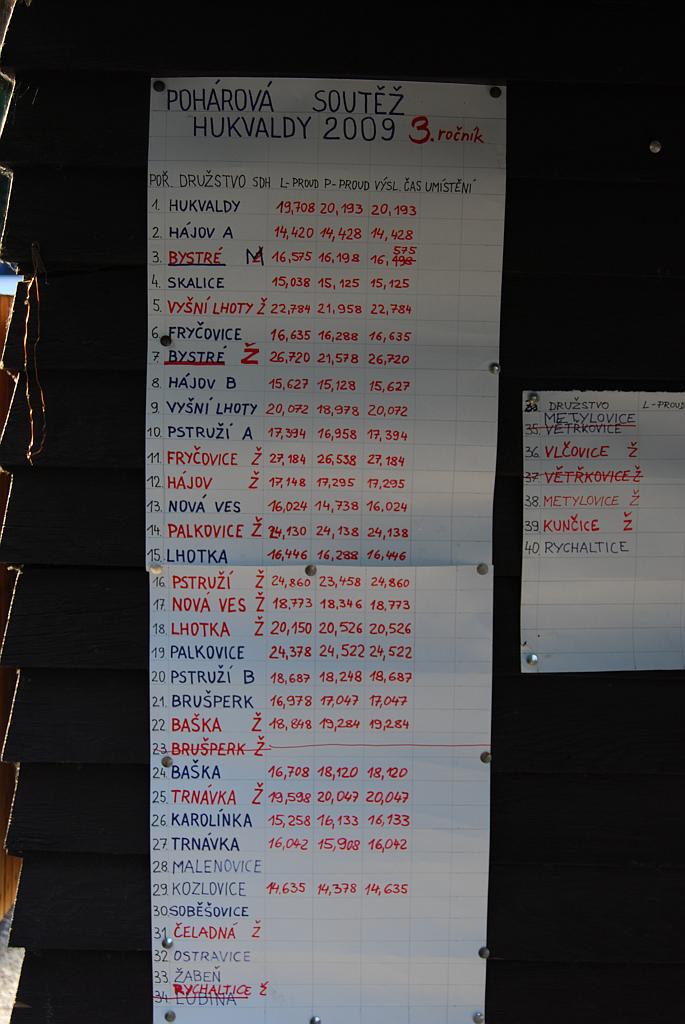 POHÁROVÁ SOUTĚŽ
HUKVALDY 2009 3. ročník
POŘ. DRUŽSTVO SDH L-PROUD P-PROUD VÝSL. ČAS UMÍSTĚNÍ
1. HUKVALDY 19,708 20,193 20,193
2. HÁJOV A 14,420 14,428 14,428
3. BYSTRÉ M 16,575 16,198 16,498 575
4. SKALICE 15,038 15,125 15,125
5. VYŠNÍ LHOTY Ž 22,784 21,958 22,784
6. FRYČOVICE 16,635 16,288 16,635
7. BYSTRÉ Ž 26,720 21,578 26,720
8. HÁJOV B 15,627 15,128 15,627
9. VYŠNÍ LHOTY 20,072 18,978 20,072
10. PSTRUŽÍ A 17,394 16,958 17,394
11. FRYČOVICE Ž 27,184 26,538 27,184
12. HÁJOV Ž 17,148 17,295 17,295
13. NOVÁ VES 16,024 14,738 16,024
14. PALKOVICE Ž 24,130 24,138 24,138
15. LHOTKA 16,446 16,288 16,446
16. PSTRUŽÍ Ž 24,860 23,458 24,860
17. NOVÁ VES Ž 18,773 18,346 18,773
18. LHOTKA Ž 20,150 20,526 20,526
19. PALKOVICE 24,378 24,522 24,522
20. PSTRUŽÍ B 18,687 18,248 18,687
21. BRUŠPERK 16,978 17,047 17,047
22. BAŠKA Ž 18,848 19,284 19,284
23. BRUŠPERK Ž
24. BAŠKA 16,708 18,120 18,120
25. TRNÁVKA Ž 19,598 20,047 20,047
26. KAROLÍNKA 15,258 16,133 16,133
27. TRNÁVKA 16,042 15,908 16,042
28. MALENOVICE
29. KOZLOVICE 14,635 14,378 14,635
30. SOBĚŠOVICE
31. ČELADNÁ Ž
32. OSTRAVICE
33. ŽABEŇ
RYCHALTICE Ž
34. LUBINA
DRUŽSTVO L-PROUD
METYLOVICE
35. VĚTŘKOVICE
36. VLČOVICE Ž
37. VĚTŘKOVICE Ž
38. METYLOVICE Ž
39. KUNČICE Ž
40. RYCHALTICE